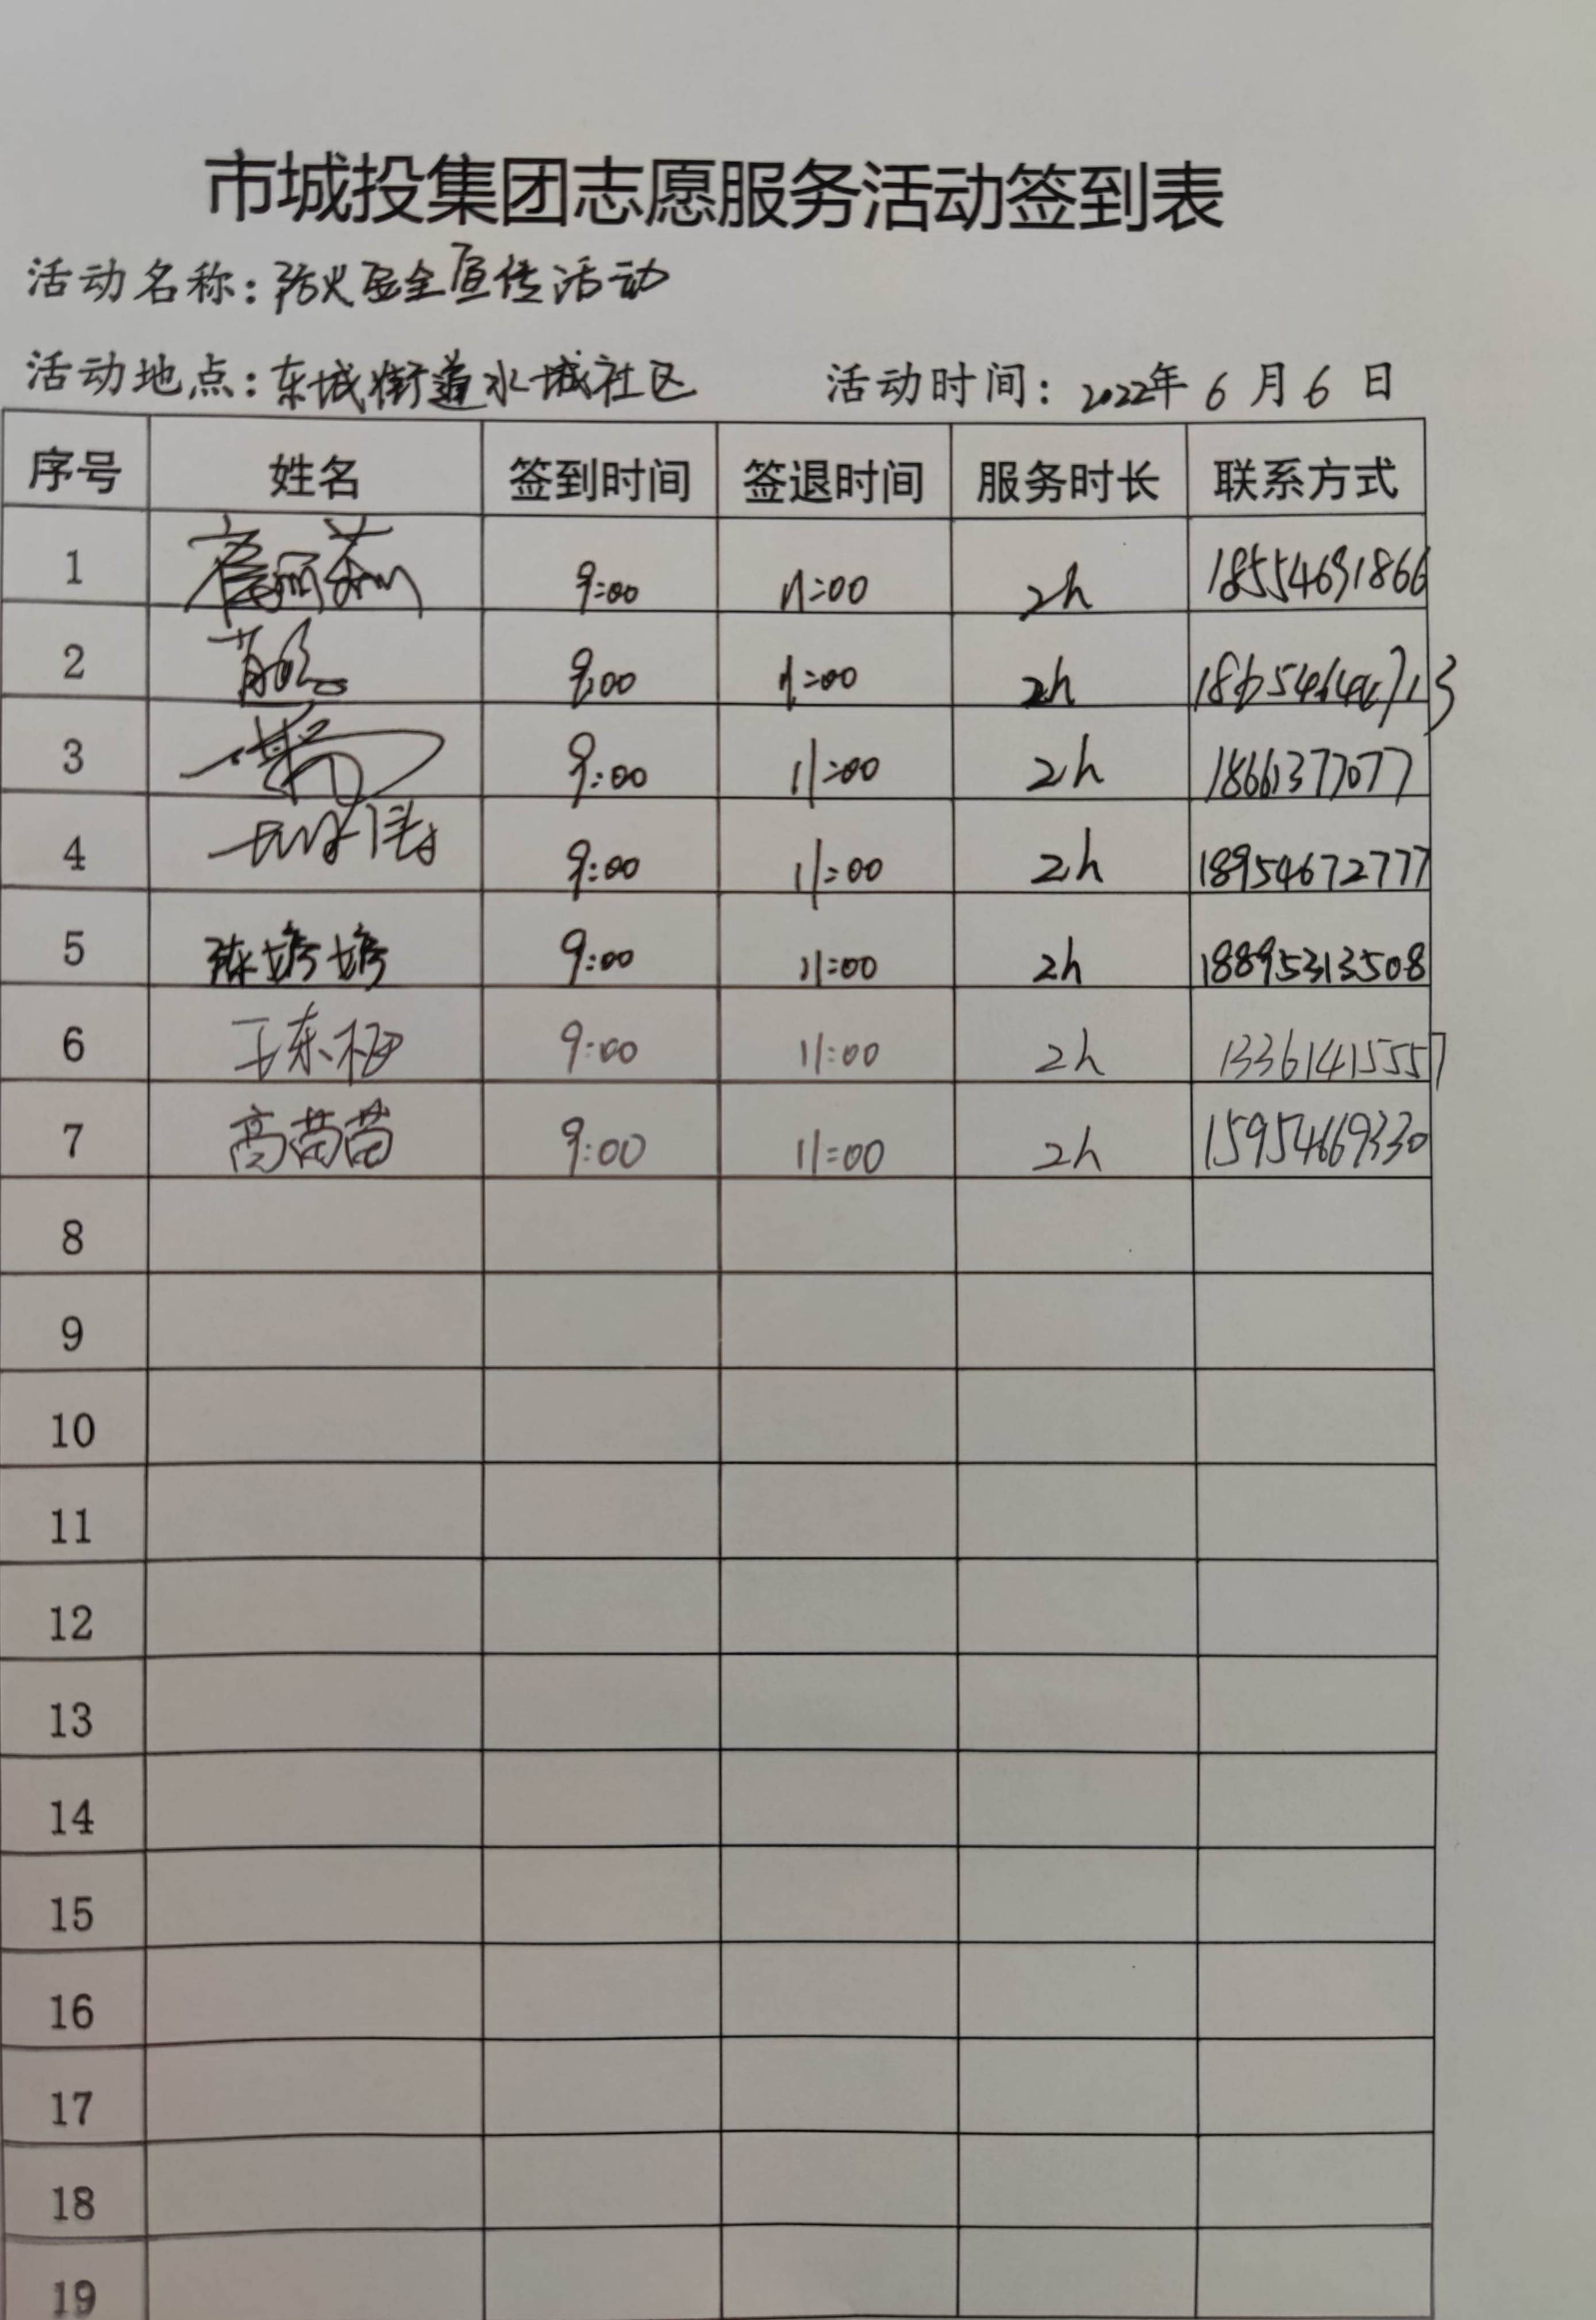 市城投集团志愿服务活动签到表
活动名称：防火安全宣传活动
活动地点：东城街道水城社区 活动时间：2022年6月6日
序号 姓名 签到时间 签退时间 服务时长 联系方式
1 9:00 11:00 2h 18554691866
2 9:00 11:00 2h
3 9:00 11:00 2h 18661377077
4 9:00 11:00 2h 18954672777
5 陈婷婷 9:00 11:00 2h 18895313508
6 王东 9:00 11:00 2h 13361415557
7 高苗苗 9:00 11:00 2h 15954669330
8
9
10
11
12
13
14
15
16
17
18
19